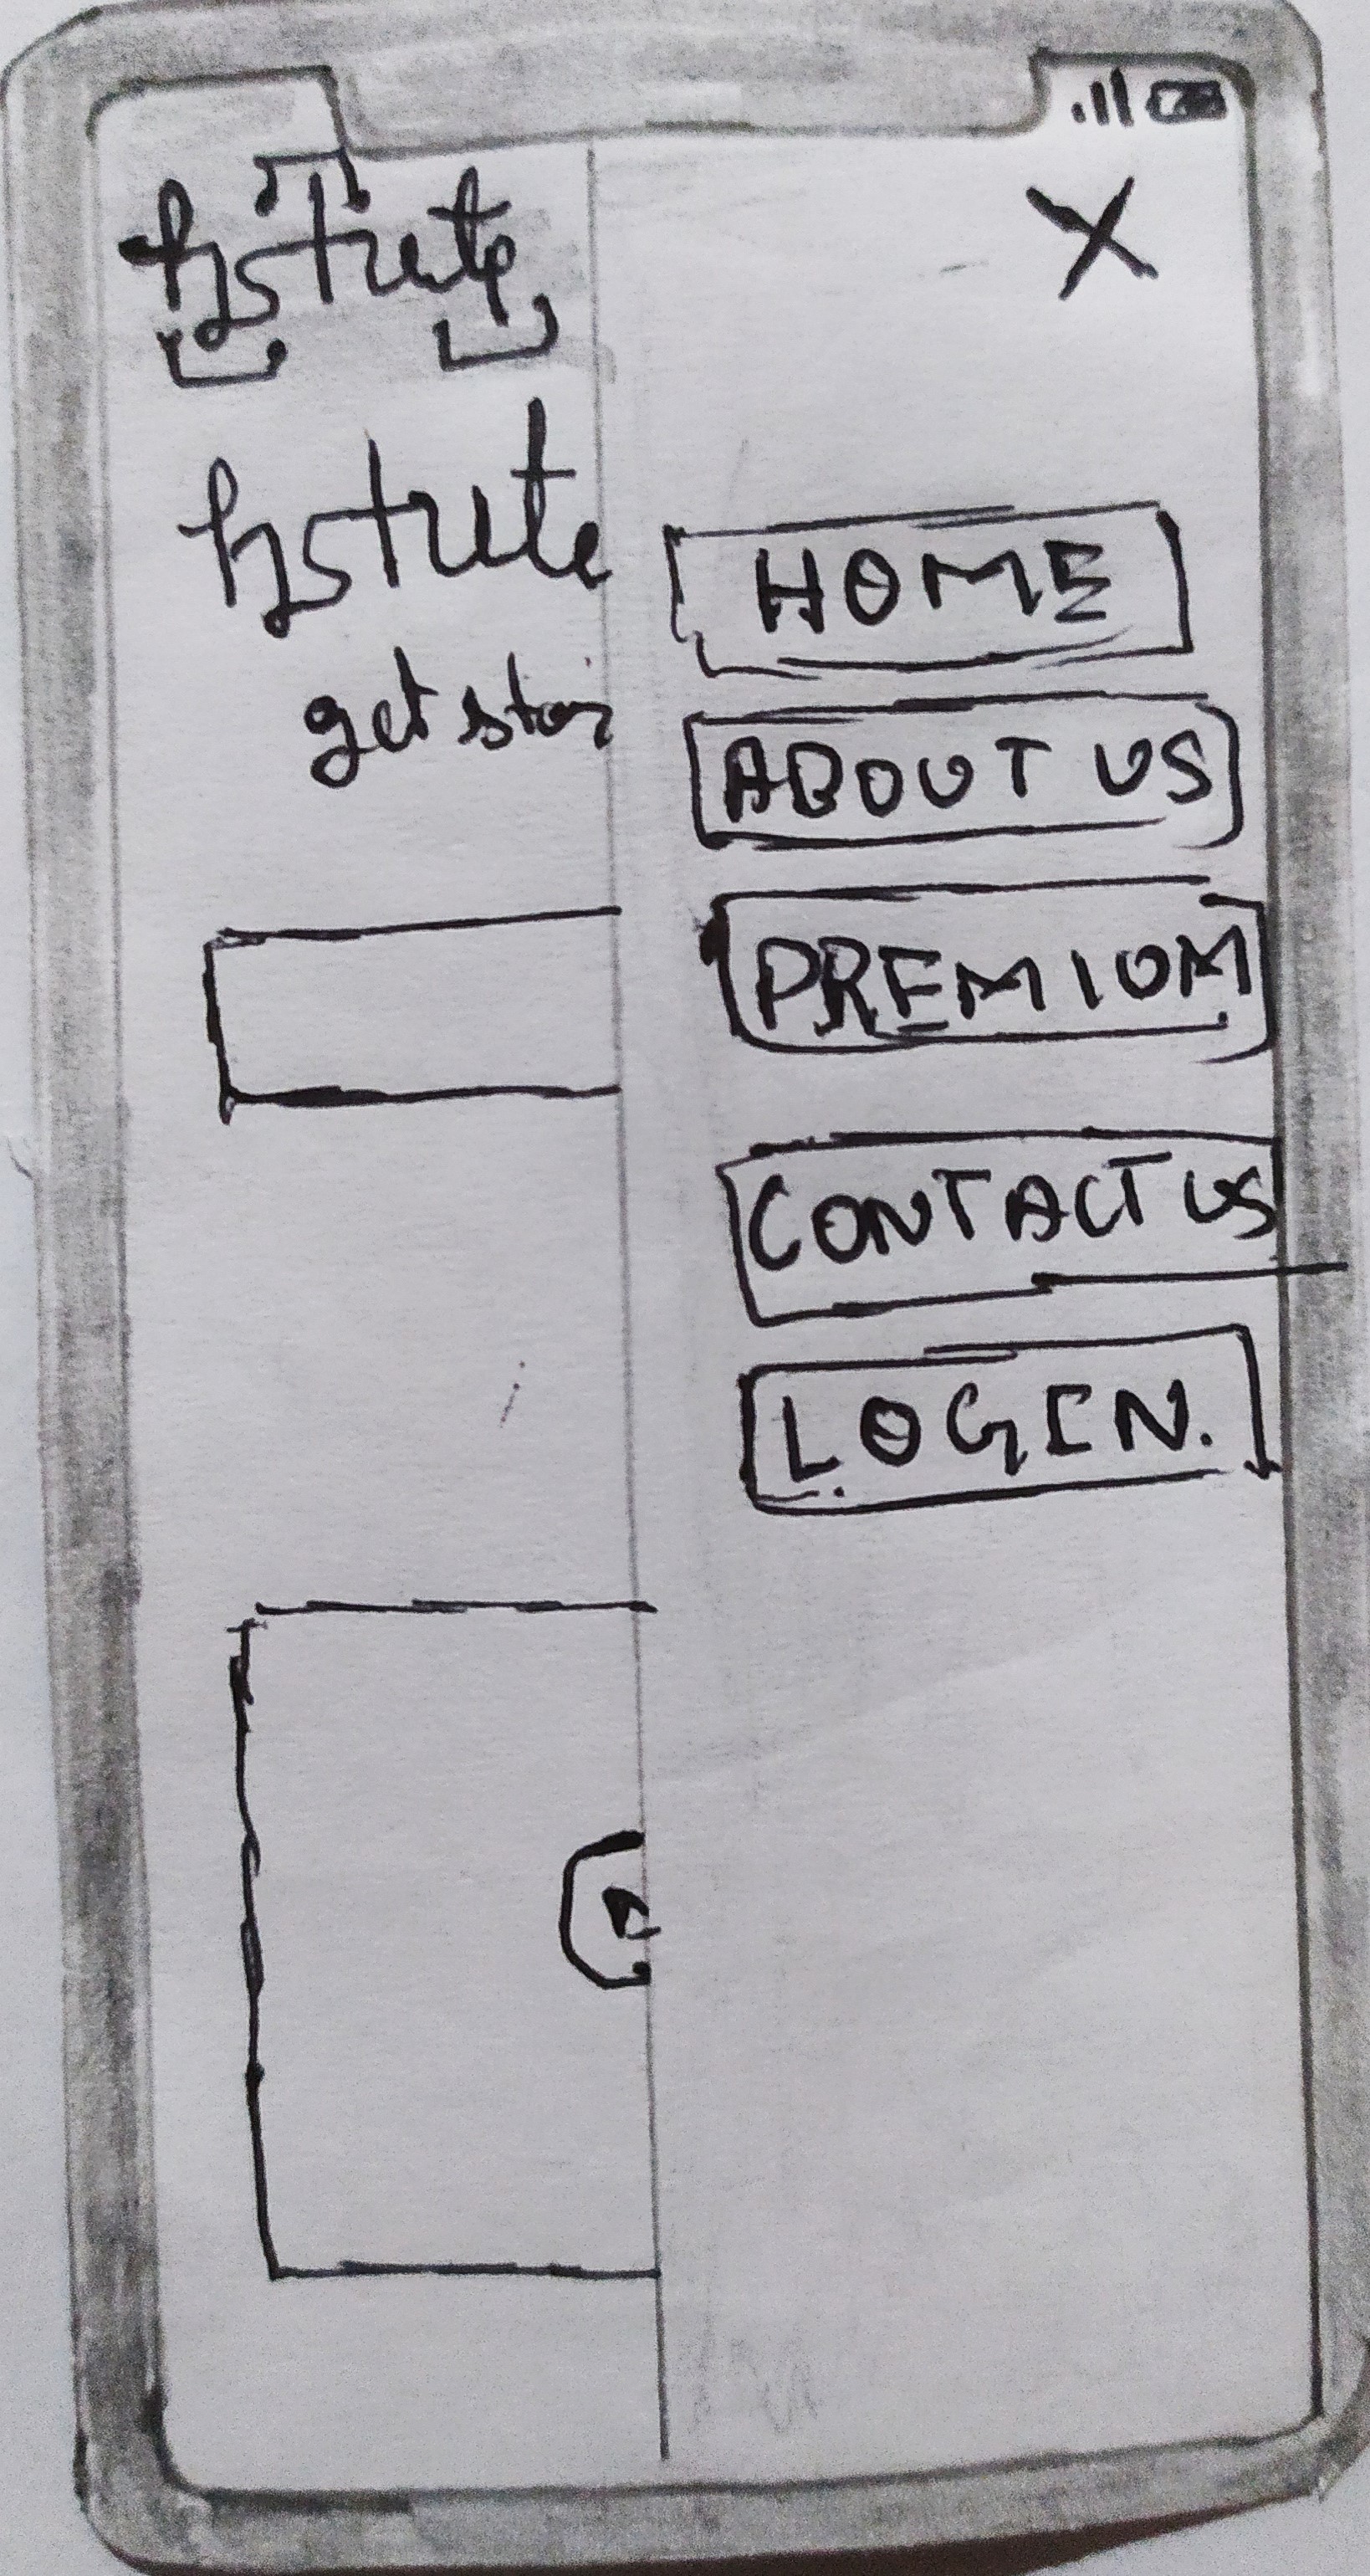 hstrute
X
hstrute
get star
HOME
ABOUT US
PREMIUM
CONTACT US
LOGIN.